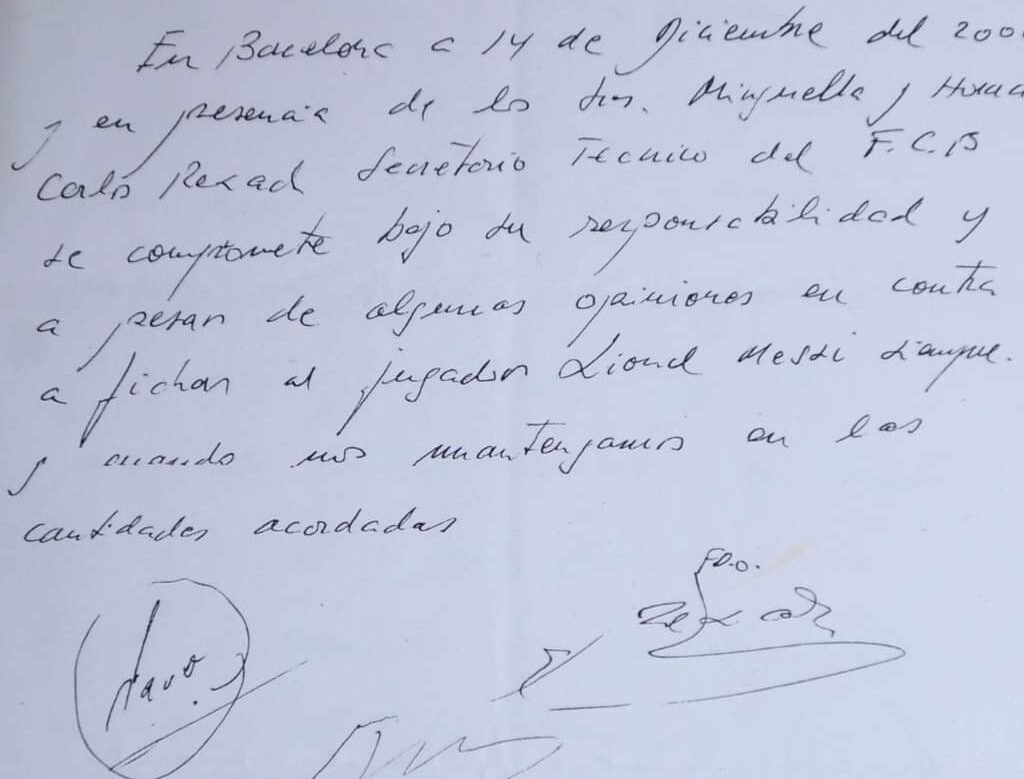 En Barcelona a 14 de Diciembre del 200
y en presencia de los Srs. Minguella y Horac
Carlos Rexach Secretario Técnico del F.C.B
se compromete bajo su responsabilidad y
a pesar de algunas opiniones en contra
a fichar al jugador Lionel Messi siempre.
y cuando nos mantengamos en las
cantidades acordadas
FDO.
Rexach